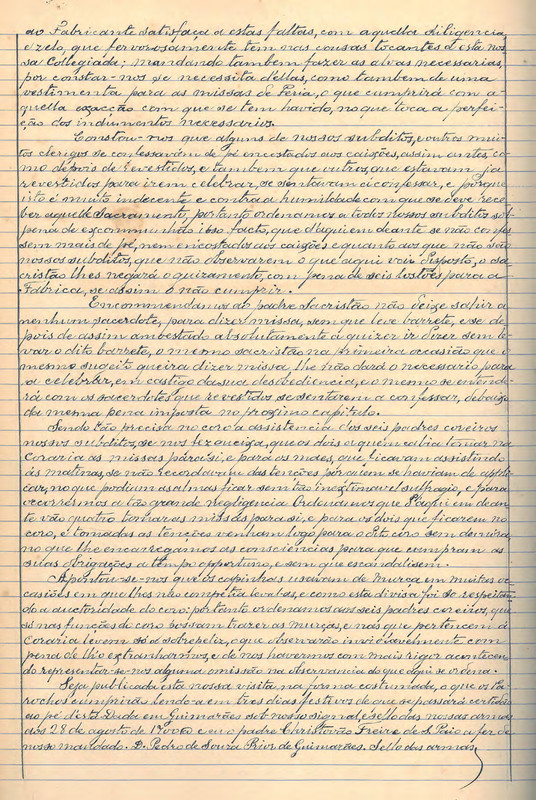 ao Fabricante satisfaça a estas faltas, com aquella diligencia
e zelo, que fervorosamente tem nas cousas tocantes á esta nos
sa Collegiada; mandando tambem fazer as alvas necessarias,
por constar-nos se necessita d'ellas, como tambem de uma
vestimenta para as missas de Feria, o que cumprirá com a
quella exacção com que se tem havido, no que toca a perfei
ção dos indumentos necessarios.
Constou-nos que alguns de nossos subditos, e outros mui
tos clerigos se confessavam de pé encostados aos caixões, assim antes, co
mo depois de revestidos, e tambem que outros, que estavam já
revestidos para irem celebrar, se sentavam a confessar, e porque
isto é muito indecente e contra a humildade com que se deve rece
ber aquelle Sacramento, portanto ordenamos a todos nossos subditos sob
pena de excommunhão ipso facto, que d'aqui em deante se não confes
sem mais de pé, nem encostados aos caixões e quanto aos que não são
nossos subditos, que não observarem o que aqui vai disposto, o sa
cristão lhes negará o guizamento, com pena de seis tostões para a
Fabrica, se assim o não cumprir.
Encommendamos ao padre Sacristão não deixe sahir a
nenhum sacerdote, para dizer missa, sem que leve barrete, e se de
pois de assim ambestado absolutamente a quizer ir dizer sem le
var o dito barrete, o mesmo sacristão na primeira occasião que o
mesmo sugeito queira dizer missa, lhe não dará o necessario para
a celebrar, em castigo da sua desobediencia, e o mesmo se entende
rá com os sacerdotes que revestidos se sentarem a confessar, debaixo
da mesma pena imposta no proximo capitulo.
Sendo tão precisa no coro a assistencia dos seis padres coreiros
nossos subditos, se nos fez queixa, que os dois a quem cabia tomar na
coraria as missas para si, e para os mais, que ficavam assistindo
ás matinas, se não recordavam das tenções por quem se haviam de appli
car, no que podiam as almas ficar sem tão inextimavel suffragio, e para
occorrermos a tão grande negligencia Ordenamos que d'aqui em dean
te vão quatro tomar as missas para si, e para os dois que ficarem no
coro, e tomadas as tenções venham logo para o dito coro sem demora,
no que lhe encarregamos as consciencias para que cumpram as
suas obrigações a tempo opportuno, e sem que escandalisem.
Apontou-se-nos que os capinhas usavam de murça em muitas oc
casiões em que lhes não competia leval-as, e como esta divisa foi só respeitan
do a auctoridade do coro; portanto ordenamos aos seis padres coreiros, que
só nas funções do coro possam trazer as murças, e nas que pertencem á
coraria levem só a sobrepeliz, o que observarão inviolavelmente com
pena de lh'o extranharmos, e de nos havermos com mais rigor acontecen
do representar-se-nos alguma omissão na observancia do que aqui se ordena.
Seja publicada esta nossa visita na forma costumada, o que os Pa
rochos cumprirão lendo-a em tres dias festivos de que se passará certidão
ao pé d'esta. Dada em Guimarães sob nosso signal, e sello das nossas armas
aos 28 de agosto de 1700 e eu o padre Christovão Freire de S. Paio a fez de
nosso mandado. D. Pedro de Souza Prior de Guimarães. Sello das armas.